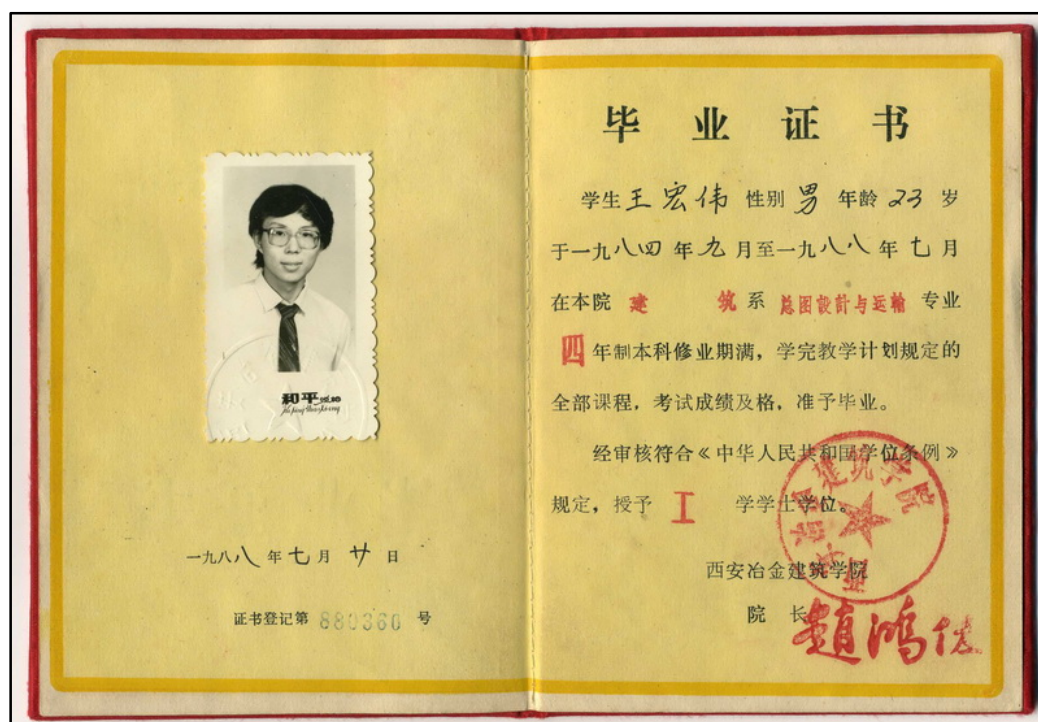 和平照相
He ping Zhao Xiang
一九八八年七月廿日
证书登记第 880360 号
毕业证书
学生王宏伟 性别 男 年龄 23 岁
于一九八四年九月至一九八八年七月
在本院 建筑系 总图設計与运输 专业
四年制本科修业期满，学完教学计划规定的
全部课程，考试成绩及格，准予毕业。
经审核符合《中华人民共和国学位条例》
规定，授予 工 学学士学位。
西安冶金建筑学院
院长
趙鴻佐